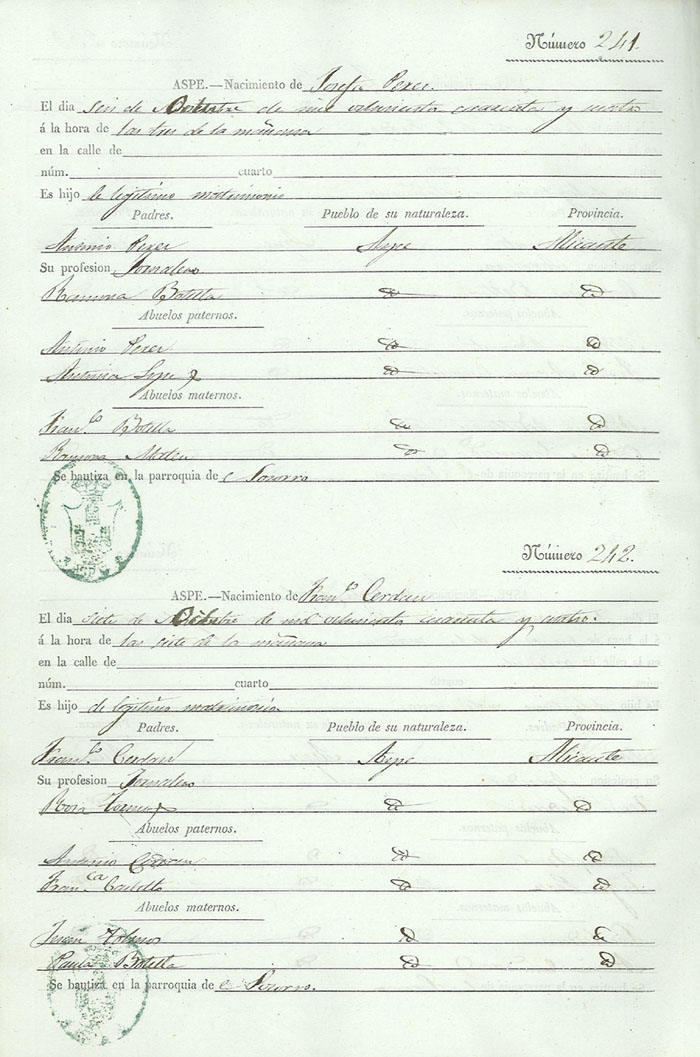 Número 241.
ASPE.—Nacimiento de Josefa Perez.
El dia seis de Octubre de mil ochocientos cuarenta y cuatro
á la hora de las tres de la mañana
en la calle de
núm. cuarto
Es hijo de legitimo matrimonio
Padres. Pueblo de su naturaleza. Provincia.
Antonio Perez Aspe Alicante
Su profesion Jornalero
Ramona Botella
Abuelos paternos.
Antonio Perez
Antonia
Abuelos maternos.
Fran.co Botella
Ramona
Se bautiza en la parroquia de Socorro
Número 242.
ASPE.—Nacimiento de Fran.co Cerdan
El dia siete de Octubre de mil ochocientos cuarenta y cuatro.
á la hora de las siete de la mañana
en la calle de
núm. cuarto
Es hijo de legitimo matrimonio
Padres. Pueblo de su naturaleza. Provincia.
Fran.co Cerdan Aspe Alicante
Su profesion Jornalero
Rosa
Abuelos paternos.
Antonio Cerdan
Fran.ca
Abuelos maternos.
Juan
Paula Botella
Se bautiza en la parroquia de Socorro.